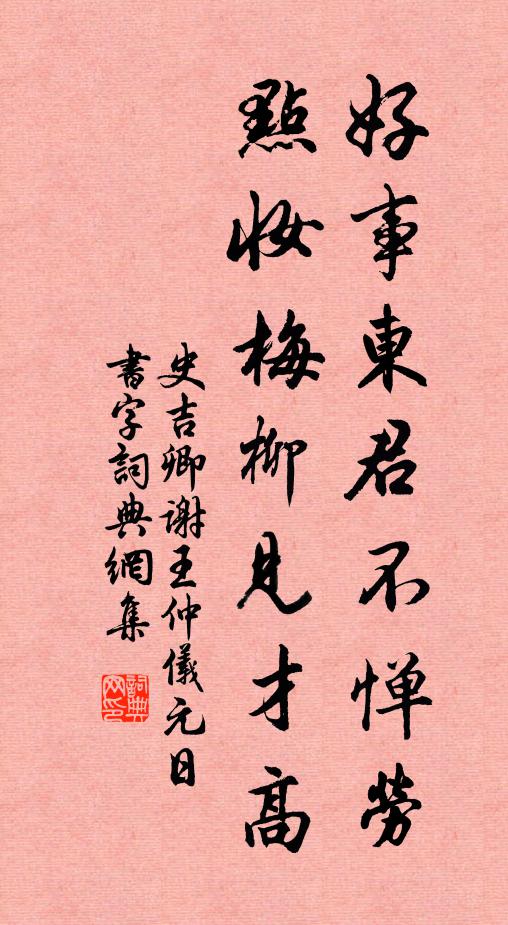 好事東君不惮勞
點妝梅柳見才高
史吉卿謝王仲儀元日
書字詞典網集
詞典网印